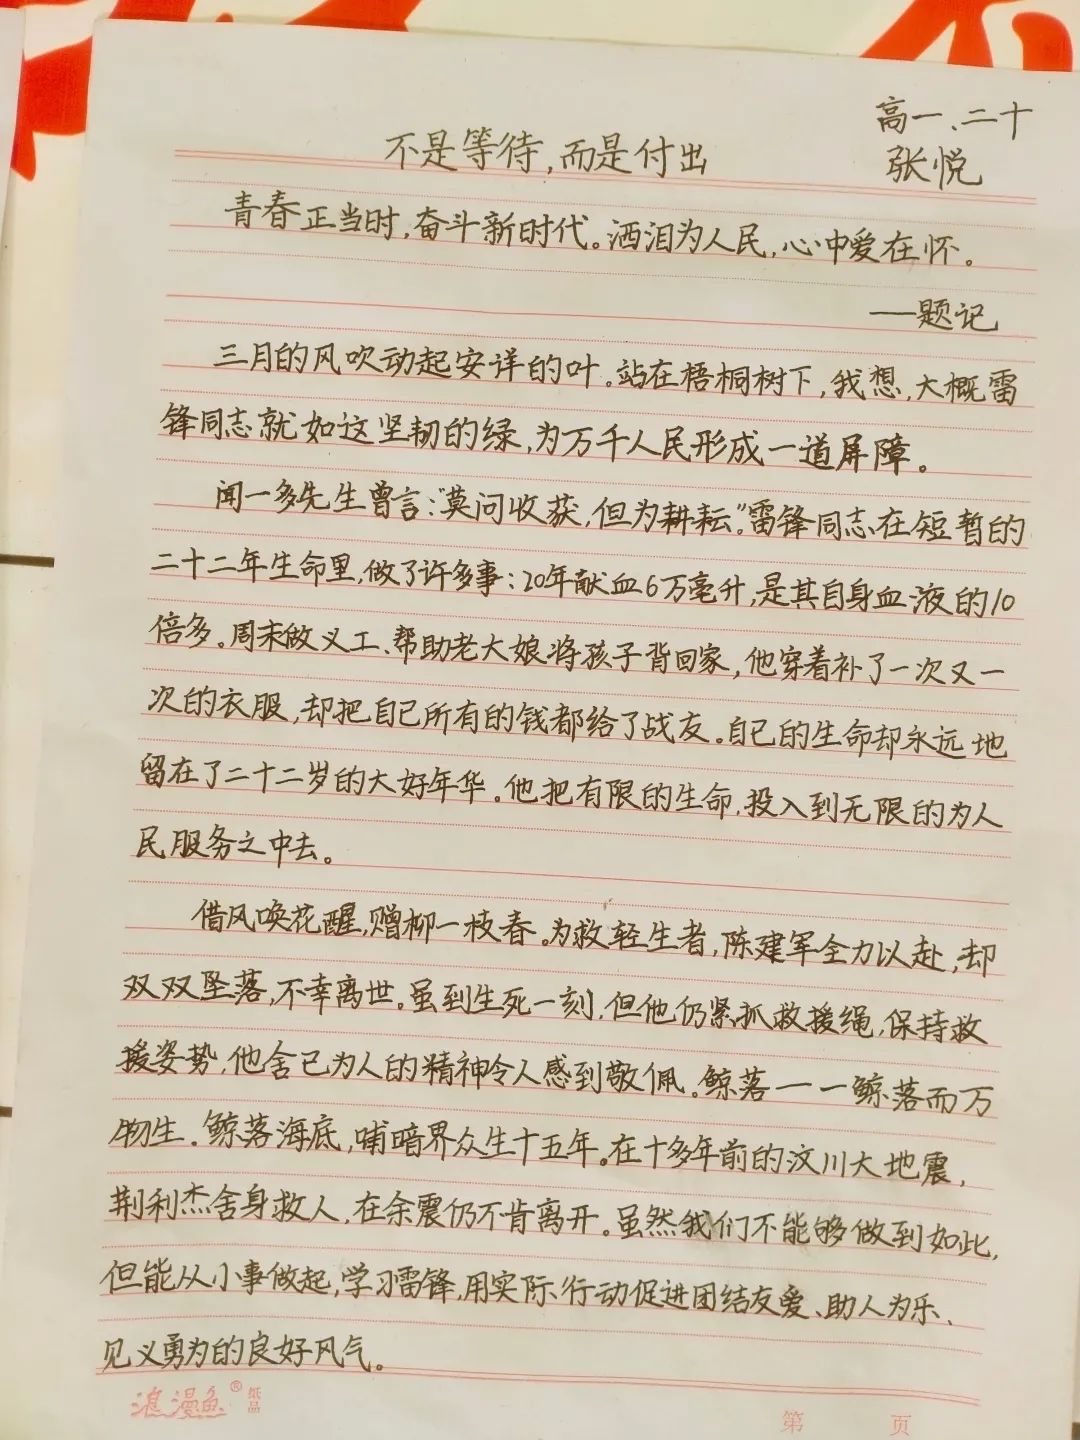 高一、二十
不是等待,而是付出
张悦
青春正当时,奋斗新时代。洒泪为人民,心中爱在怀。
——题记
三月的风吹动起安详的叶。站在梧桐树下,我想,大概雷
锋同志就如这坚韧的绿,为万千人民形成一道屏障。
闻一多先生曾言:“莫问收获,但为耕耘。”雷锋同志在短暂的
二十二年生命里,做了许多事:20年献血6万毫升,是其自身血液的10
倍多。周末做义工、帮助老大娘将孩子背回家,他穿着补了一次又一
次的衣服,却把自己所有的钱都给了战友。自己的生命却永远地
留在了二十二岁的大好年华。他把有限的生命,投入到无限的为人
民服务之中去。
借风唤花醒,赠柳一枝春。为救轻生者,陈建军全力以赴,却
双双坠落,不幸离世。虽到生死一刻,但他仍紧抓救援绳,保持救
援姿势,他舍己为人的精神令人感到敬佩。鲸落——鲸落而万
物生。鲸落海底,哺暗界众生十五年。在十多年前的汶川大地震,
荆利杰舍身救人,在余震仍不肯离开。虽然我们不能够做到如此,
但能从小事做起,学习雷锋,用实际行动促进团结友爱、助人为乐、
见义勇为的良好风气。
浪漫鱼®纸品
第 页